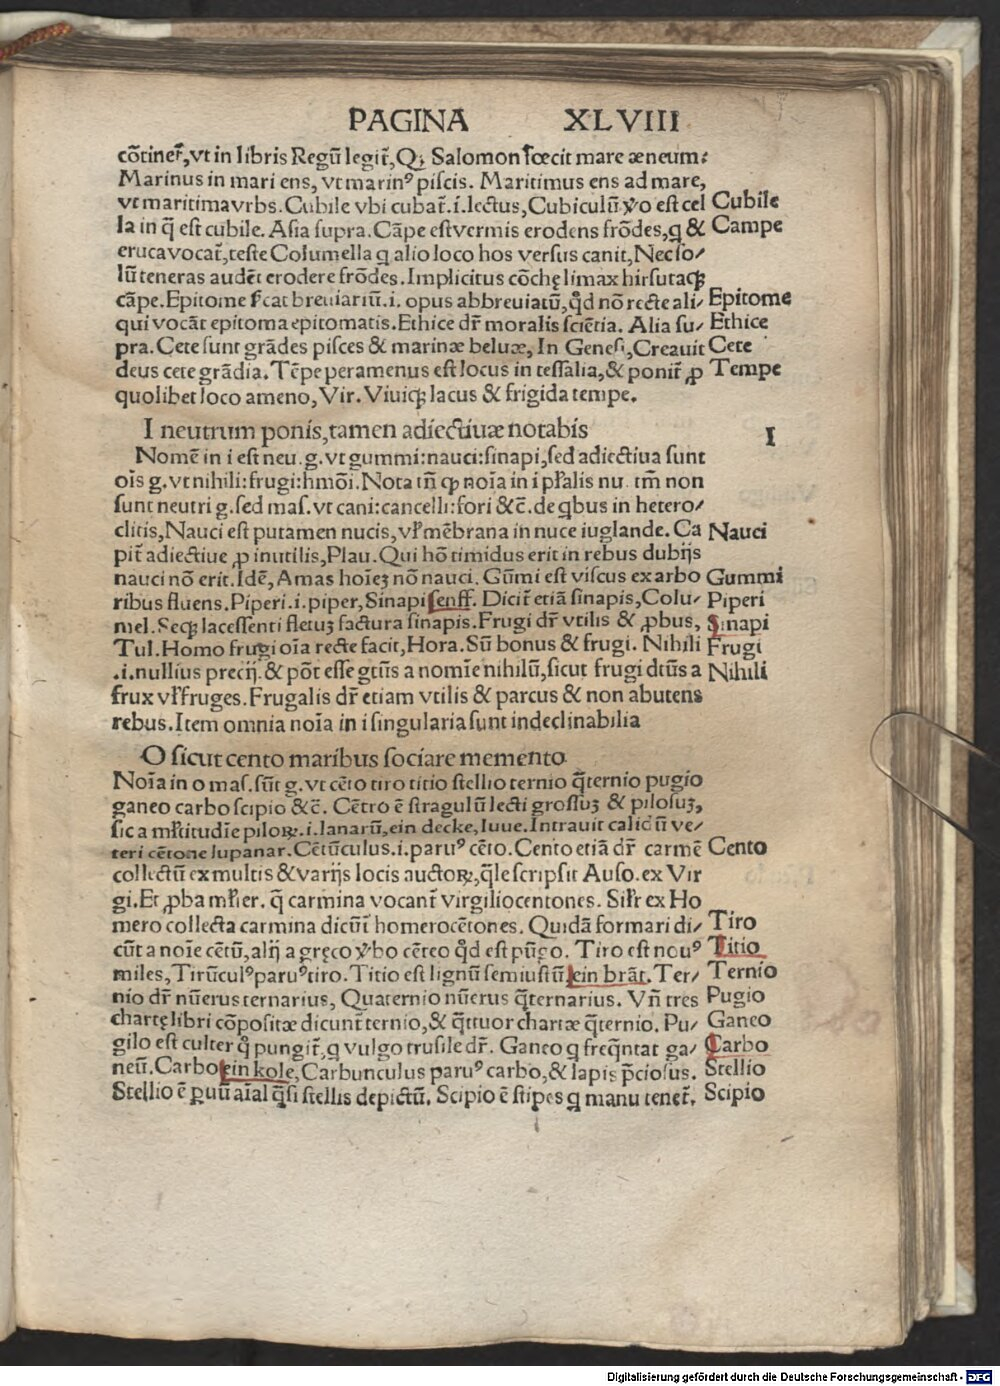 PAGINA XLVIII
cōtineſ̃,vt in libris Regū legiť,Qꝫ Salomon fœcit mare æneum:
Marinus in mari ens, vt marinꝰ piſcis. Maritimus ens ad mare,
vt maritima vrbs. Cubile vbi cubať.i.lectus, Cubiculū ꝟo eſt cel Cubile
la in q̄ eſt cubile. Aſia ſupra. Cāpe eſt vermis erodens frōdes,q & Campe
eruca vocať,teſte Columella q alio loco hos verſus canit, Nec ſo⸗
lū teneras audēt erodere frōdes. Implicitus cōchę limax hirſutaqꝫ
cāpe. Epitome ſ̄cat breuiariū.i. opus abbreuiatū,qd̄ nō recte ali⸗ Epitome
qui vocāt epitoma epitomatis. Ethice dr̄ moralis ſciētia. Alia ſu⸗ Ethice
pra. Cete ſunt grādes piſces & marinæ beluæ, In Geneſi,Creauit Cete
deus cete grādia. Tēpe peramenus eſt locus in teſſalia,& poniť ꝓ Tempe
quolibet loco ameno, Vir. Viuiqꝫ lacus & frigida tempe.
I neutrum ponis,tamen adiectiuæ notabis I
Nomē in i eſt neu. g. vt gummi:nauci:ſinapi,ſed adiectiua ſunt
oīs g. vt nihili:frugi:hmōi. Nota tn̄ qꝫ noīa in i pľalis nu. tm̄ non
ſunt neutri g. ſed maſ. vt cani:cancelli:fori &c̄. de qbus in hetero⸗
clitis, Nauci eſt putamen nucis, vľ mēbrana in nuce iuglande. Ca Nauci
piť adiectiue ꝓ inutilis, Plau. Qui hō timidus erit in rebus dubijs
nauci nō erit. Idē, Amas hoīeꝫ nō nauci. Gūmi eſt viſcus ex arbo Gummi
ribus fluens. Piperi.i.piper, Sinapi ſenff. Diciť etiā ſinapis, Colu⸗ Piperi
mel. Seqꝫ laceſſenti fletuꝫ factura ſinapis. Frugi dr̄ vtilis & ꝓbus, Sinapi
Tul. Homo frugi oīa recte facit, Hora. Sū bonus & frugi. Nihili Frugi
.i.nullius precij. & pōt eſſe gtūs a nomīe nihilū,ſicut frugi dtūs a Nihili
frux vľ fruges. Frugalis dr̄ etiam vtilis & parcus & non abutens
rebus. Item omnia noīa in i ſingularia ſunt indeclinabilia
O ſicut cento maribus ſociare memento
Noīa in o maſ. ſūt g. vt cēto tiro titio ſtellio ternio q̄ternio pugio
ganeo carbo ſcipio &c̄. Cētro ē ſtragulū lecti groſſuꝫ & piloſuꝫ,
ſic a mľtitudīe piloꝝ.i.lanarū,ein decke, Iuue. Intrauit calidū ve⸗
teri cētone lupanar. Cētūculus.i.paruꝰ cēto. Cento etiā dr̄ carmē Cento
collectū ex multis & varijs locis auctoꝝ,q̄le ſcripſit Auſo. ex Vir
gi. Et ꝓba mľier. q̄ carmina vocanť virgiliocentones. Siľr ex Ho
mero collecta carmina dicūť homerocētones. Quidā formari di⸗ Tiro
cūt a noīe cētū,alij a gręco ꝟbo cēteo qd̄ eſt pūgo. Tiro eſt nouꝰ Titio
miles, Tirūculꝰ paruꝰ tiro. Titio eſt lignū ſemiuſtū ein brāt. Ter⸗ Ternio
nio dr̄ nūerus ternarius, Quaternio nūerus q̄ternarius. Vn̄ tres Pugio
chartę libri cōpoſitæ dicunť ternio,& q̄ttuor chartæ q̄ternio. Pu⸗ Ganeo
gilo eſt culter q̄ pungiť,q vulgo truſile dr̄. Ganeo q freq̄ntat ga⸗ Carbo
neū. Carbo ein kole, Carbunculus paruꝰ carbo,& lapis p̄cioſus. Stellio
Stellio ē ꝑuū aīal q̄ſi ſtellis depictū. Scipio ē ſtipes q manu teneť. Scipio
Digitalisierung gefördert durch die Deutsche Forschungsgemeinschaft - DFG